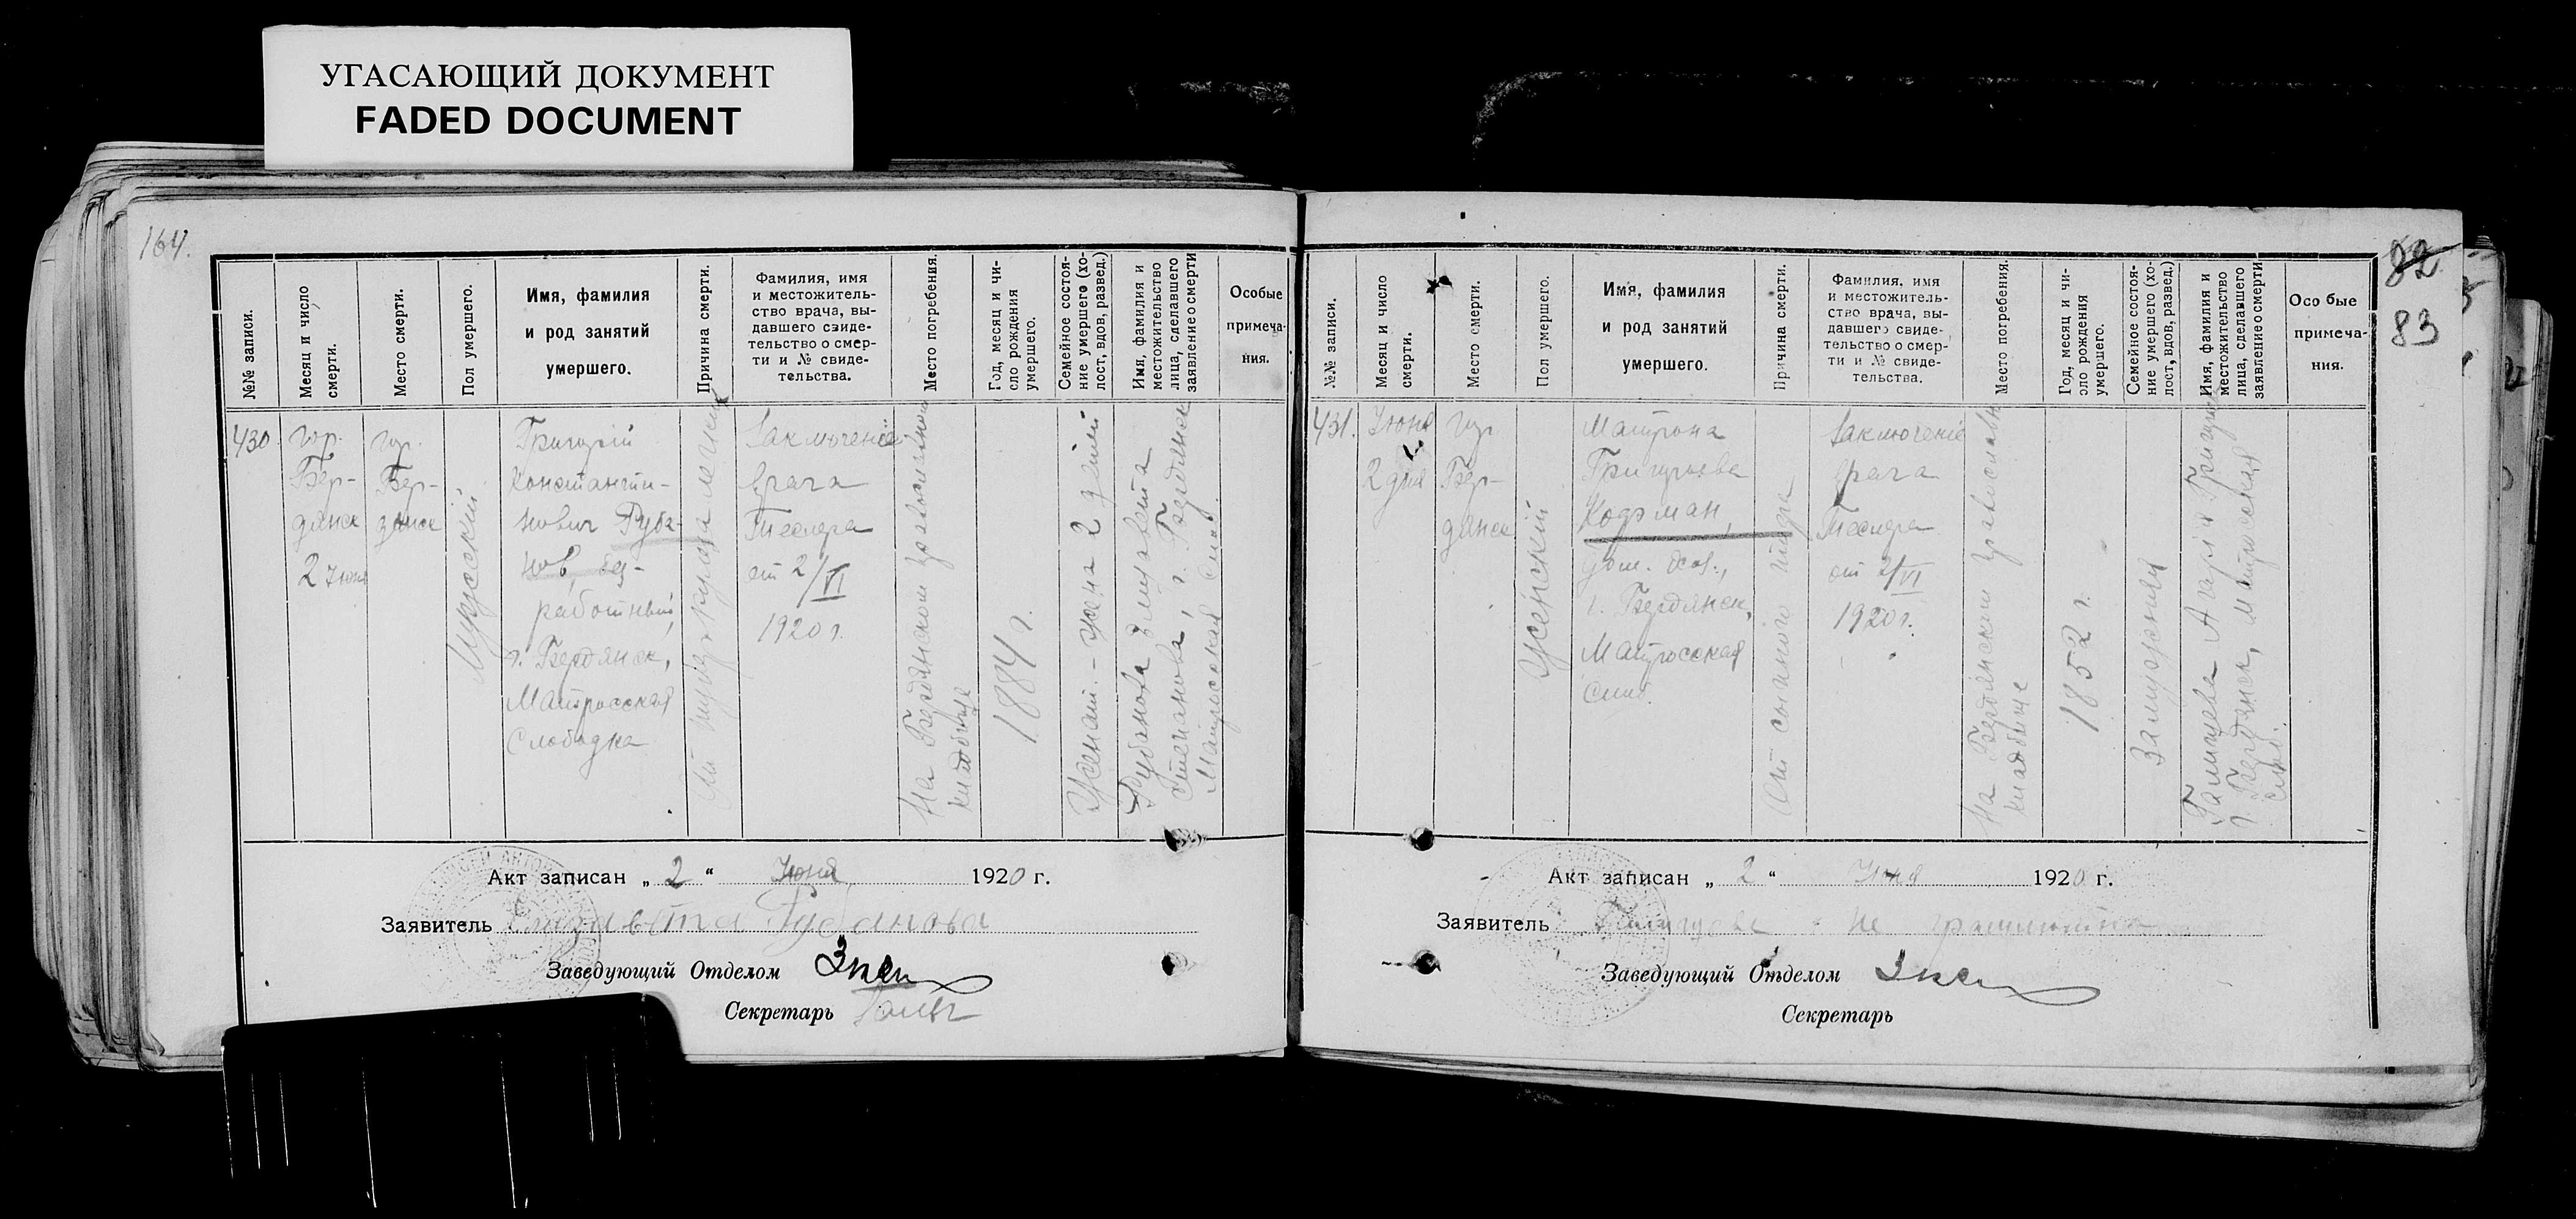 УГАСАЮЩИЙ ДОКУМЕНТ
FADED DOCUMENT
164.
№№ записи.
Месяц и число
смерти.
Место смерти.
Пол умершего.
Имя, фамилия
и род занятий
умершего.
Причина смерти.
Фамилия, имя
и местожитель-
ство врача, вы-
давшего свиде-
тельство о смер-
ти и № свиде-
тельства.
Место погребения.
Год, месяц и чи-
сло рождения
умершего.
Семейное состоя-
ние умершего (хо-
лост, вдов, развед.)
Имя, фамилия и
местожительство
лица, сделавшего
заявление о смерти
Особые
примеча-
ния.
430
гор.
Бер-
дянск
2 Июня
гор.
Бер-
дянск
Мужской
Григорій
Константи-
нович Руба-
нов, без-
работный,
г. Бердянск,
Матросская
Слободка
От туберкулеза легких
Заключение
врача
Тесслера
от 2/VI
1920 г.
На Бердянском православном
кладбище
1884 г.
Женат. - Жена 2 детей
Рубанова Елизавета
Степановна, г. Бердянск
Матросская Слоб.
Акт записан „ 2 “ Июня 1920 г.
Заявитель Елизавета Рубанова
Заведующий Отделом
Секретарь
82
83
№№ записи.
Месяц и число
смерти.
Место смерти.
Пол умершего.
Имя, фамилия
и род занятий
умершего.
Причина смерти.
Фамилия, имя
и местожитель-
ство врача, вы-
давшего свиде-
тельство о смер-
ти и № свиде-
тельства.
Место погребения.
Год, месяц и чи-
сло рождения
умершего.
Семейное состоя-
ние умершего (хо-
лост, вдов, развед.)
Имя, фамилия и
местожительство
лица, сделавшего
заявление о смерти
Особые
примеча-
ния.
431.
Июня
2 дня
гор.
Бер-
дянск
Женский
Матрона
Григорьева
Кофман,
дом. хоз.,
г. Бердянск,
Матросская
Слоб.
От сыпного тифа
Заключение
врача
Тесслера
от 2/VI
1920 г.
На Бердянским православн
кладбище
1852 г.
Замужняя
г. Бердянск, Матросская
слоб.
Акт записан „ 2 “ Июня 1920 г.
Заявитель не грамотна
Заведующий Отделом
Секретарь